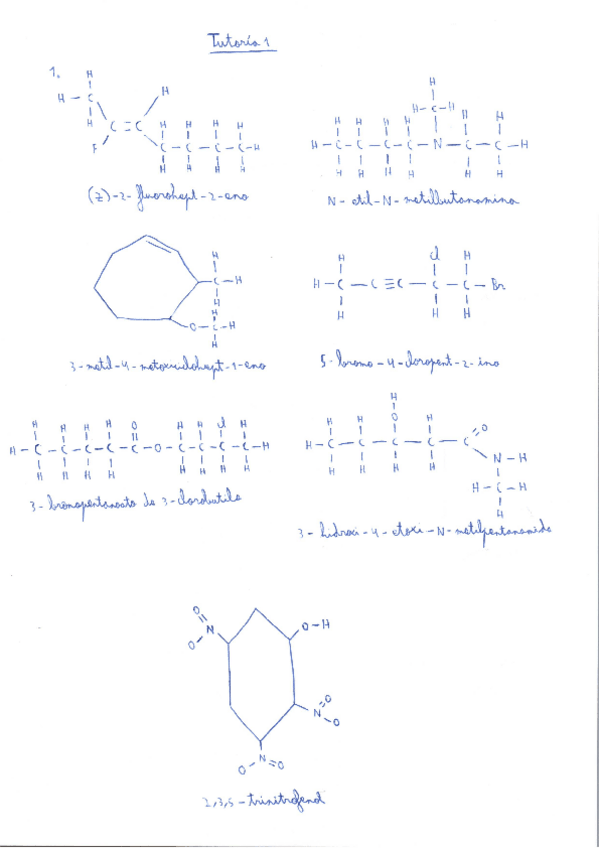 Tutoría 1
1.
(Z)-2-fluorohept-2-eno
N-etil-N-metilbutanamina
3-metil-4-metoxiciclohept-1-eno
5-bromo-4-cloropent-2-ino
3-bromopentanoato de 3-clorobutilo
3-hidroxi-4-etoxi-N-metilpentanamida
2,3,5-trinitrofenol